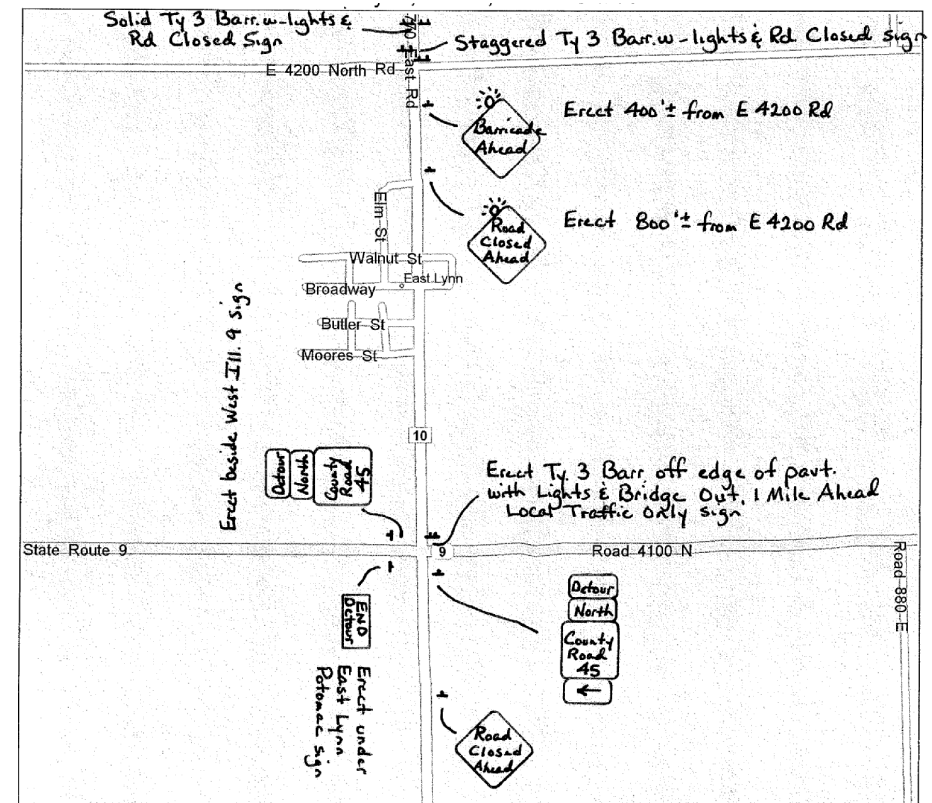 Solid Ty 3 Barr. w-lights &
Rd Closed Sign
Staggered Ty 3 Barr. w-lights & Rd Closed Sign
East Rd
E 4200 North Rd
Barricade
Ahead
Erect 400'± from E 4200 Rd
Road
Closed
Ahead
Erect 800'± from E 4200 Rd
Elm St
Walnut St
East Lynn
Broadway
Butler St
Moores St
Erect beside West Ill. 9 sign
10
Detour
North
County
Road
45
Erect Ty 3 Barr. off edge of pavt.
with Lights & Bridge Out, 1 Mile Ahead
Local Traffic Only Sign
State Route 9
9
Road 4100 N
Road 880 E
END
Detour
Erect under
East Lynn
Potomac sign
Detour
North
County
Road
45
←
Road
Closed
Ahead